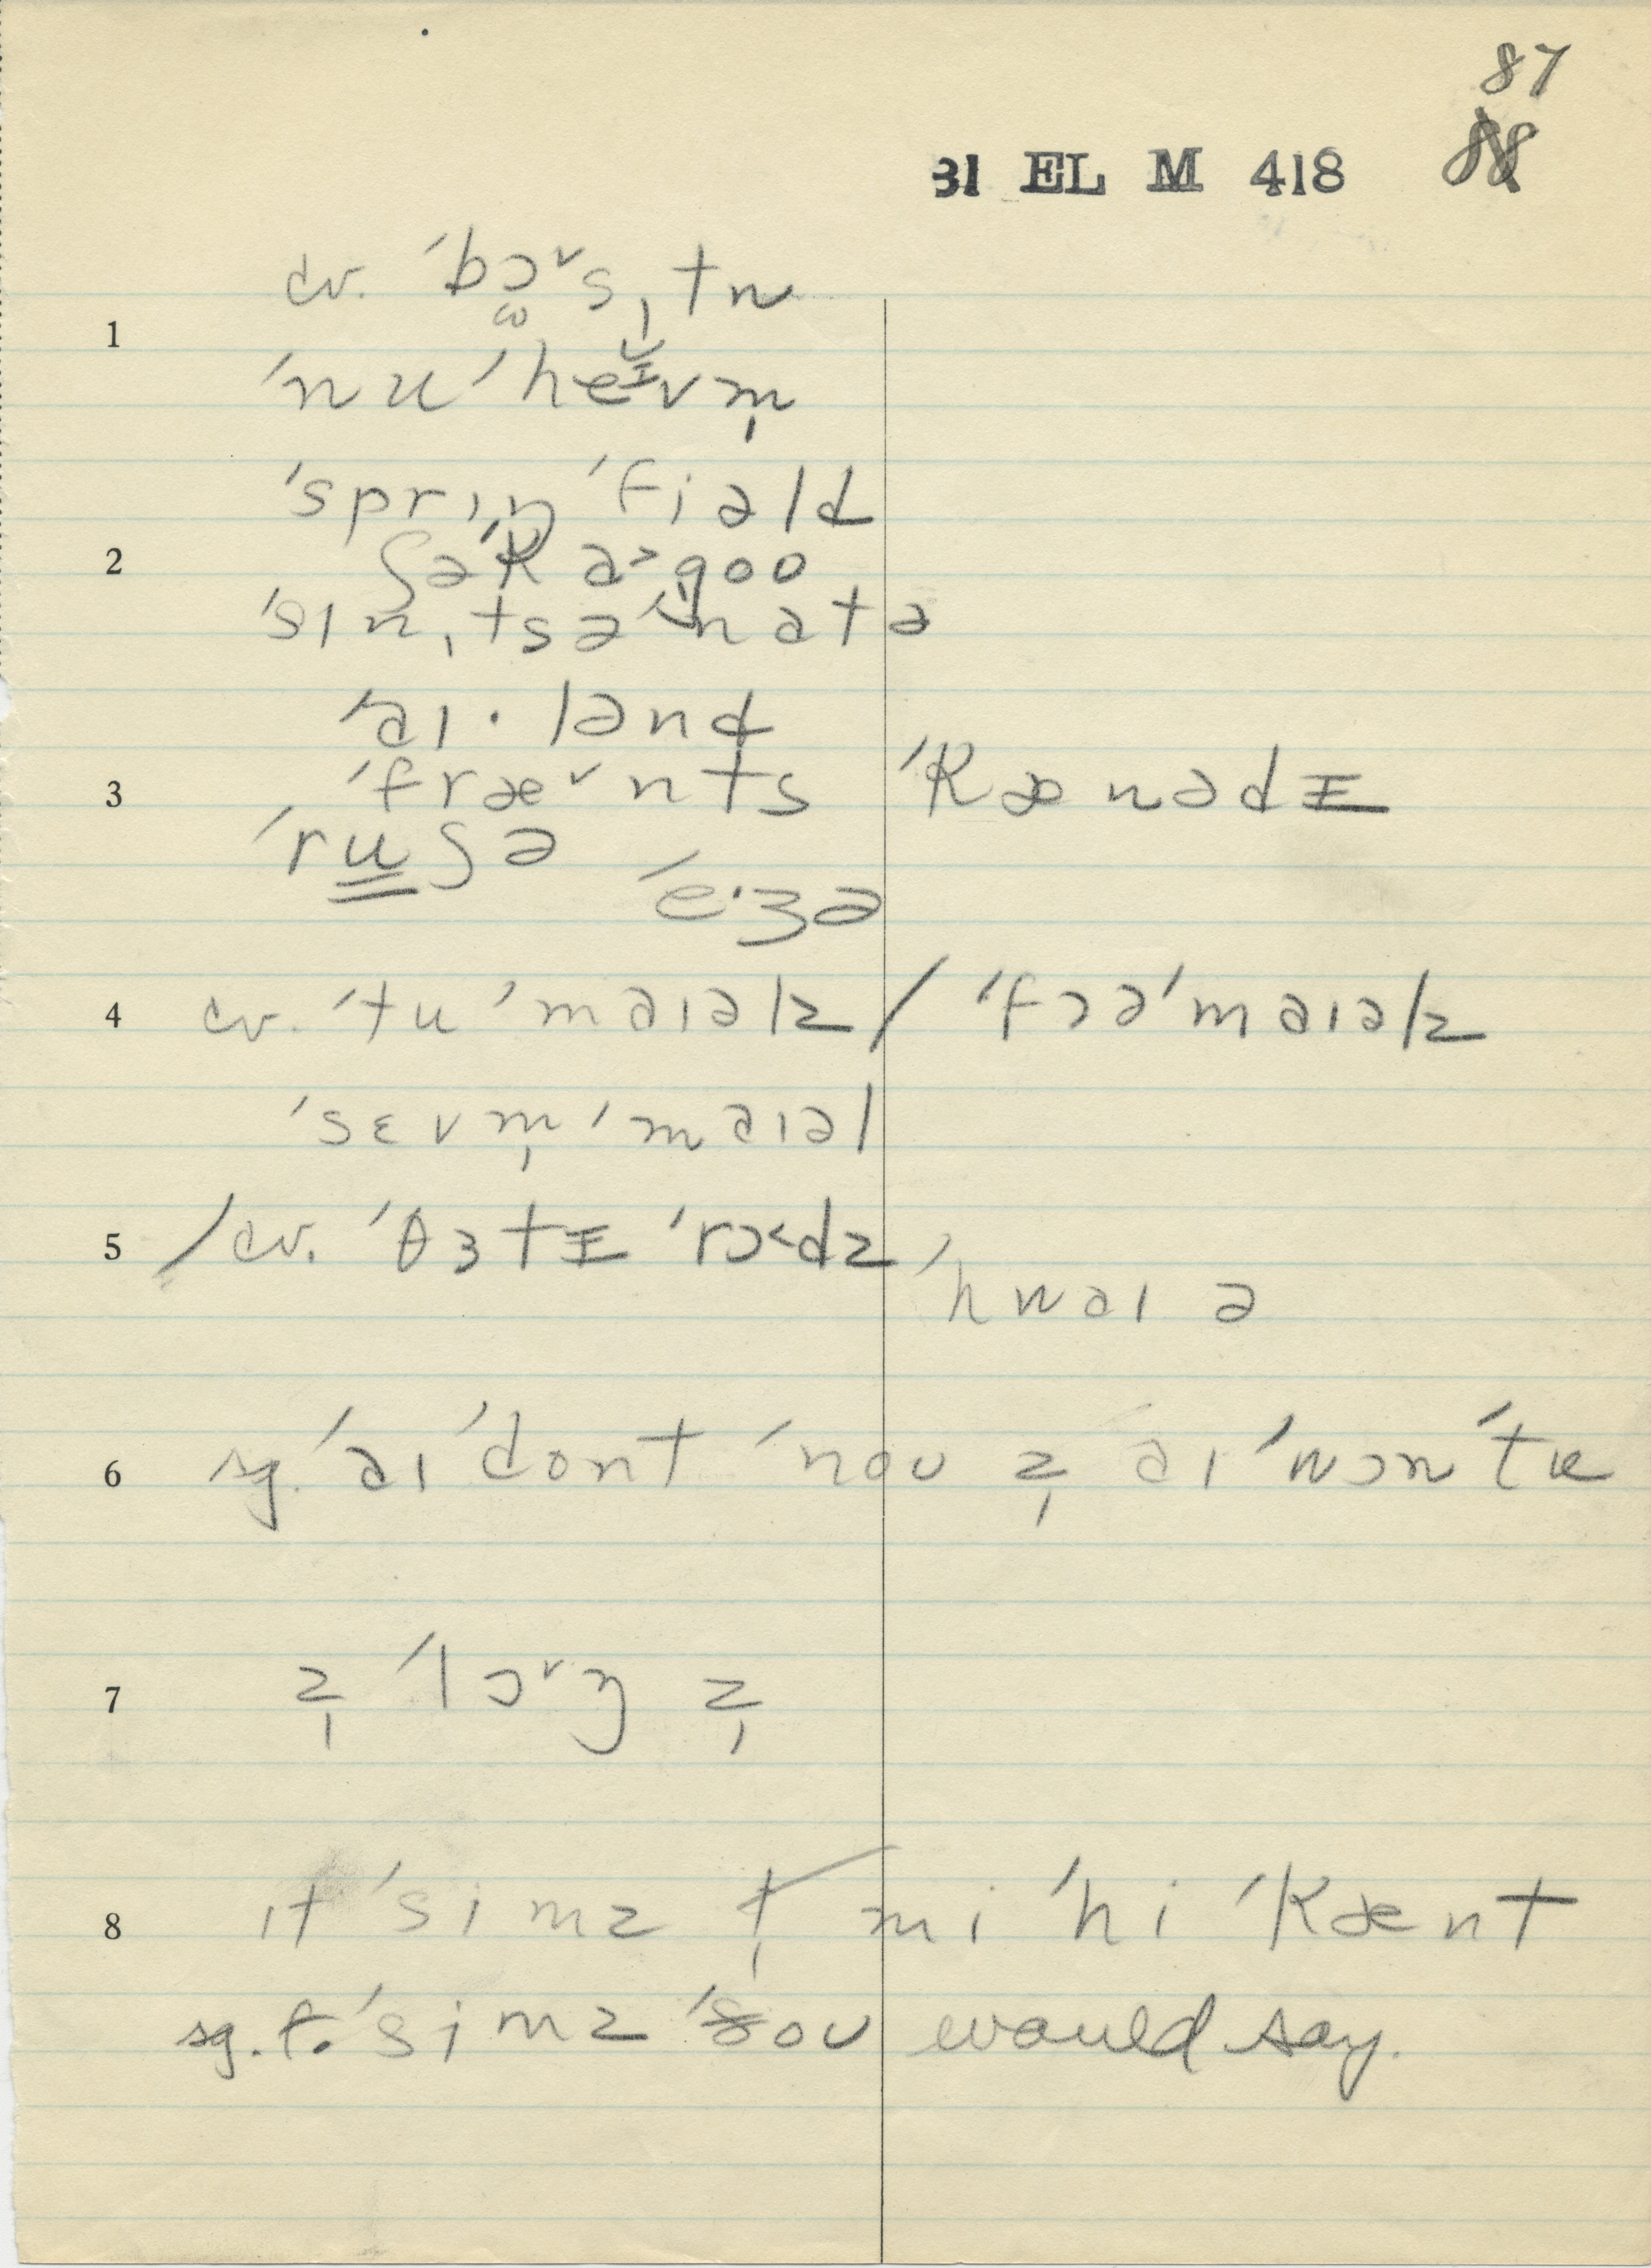 87
88
31 EL M 418
cv. ˈbɔ̜˅sˌtn
1
ˈnu ˈheɪ̆vm̩
ˈsprɪŋ ˈfiəld
2 ʃəˈka˃goʊ
ˈsɪnˌtsəˈnatə
ˈaɪ·lənd
3 ˈfræ˅nts ˈkænədɪ
ˈruʃə
ˈe·ʒə
4 cv. ˈtu ˈmaɪəlz / ˈfɔə ˈmaɪəlz
ˈsɛvm̩ ˈmaɪəl
5 / cv. ˈθɜtɪ ˈrɔ˂dz
ˈhwaɪə
6 sg. ˈaɪ ˈdont ˈnoʊ z̩ aɪ ˈwɔn ˈtʊ
7 z̩ ˈlɔ˅ŋ z̩
8 ɪt ˈsimz t̩ mi ˈhi ˈkænt
sg. t. ˈsimz ˈsoʊ would say.